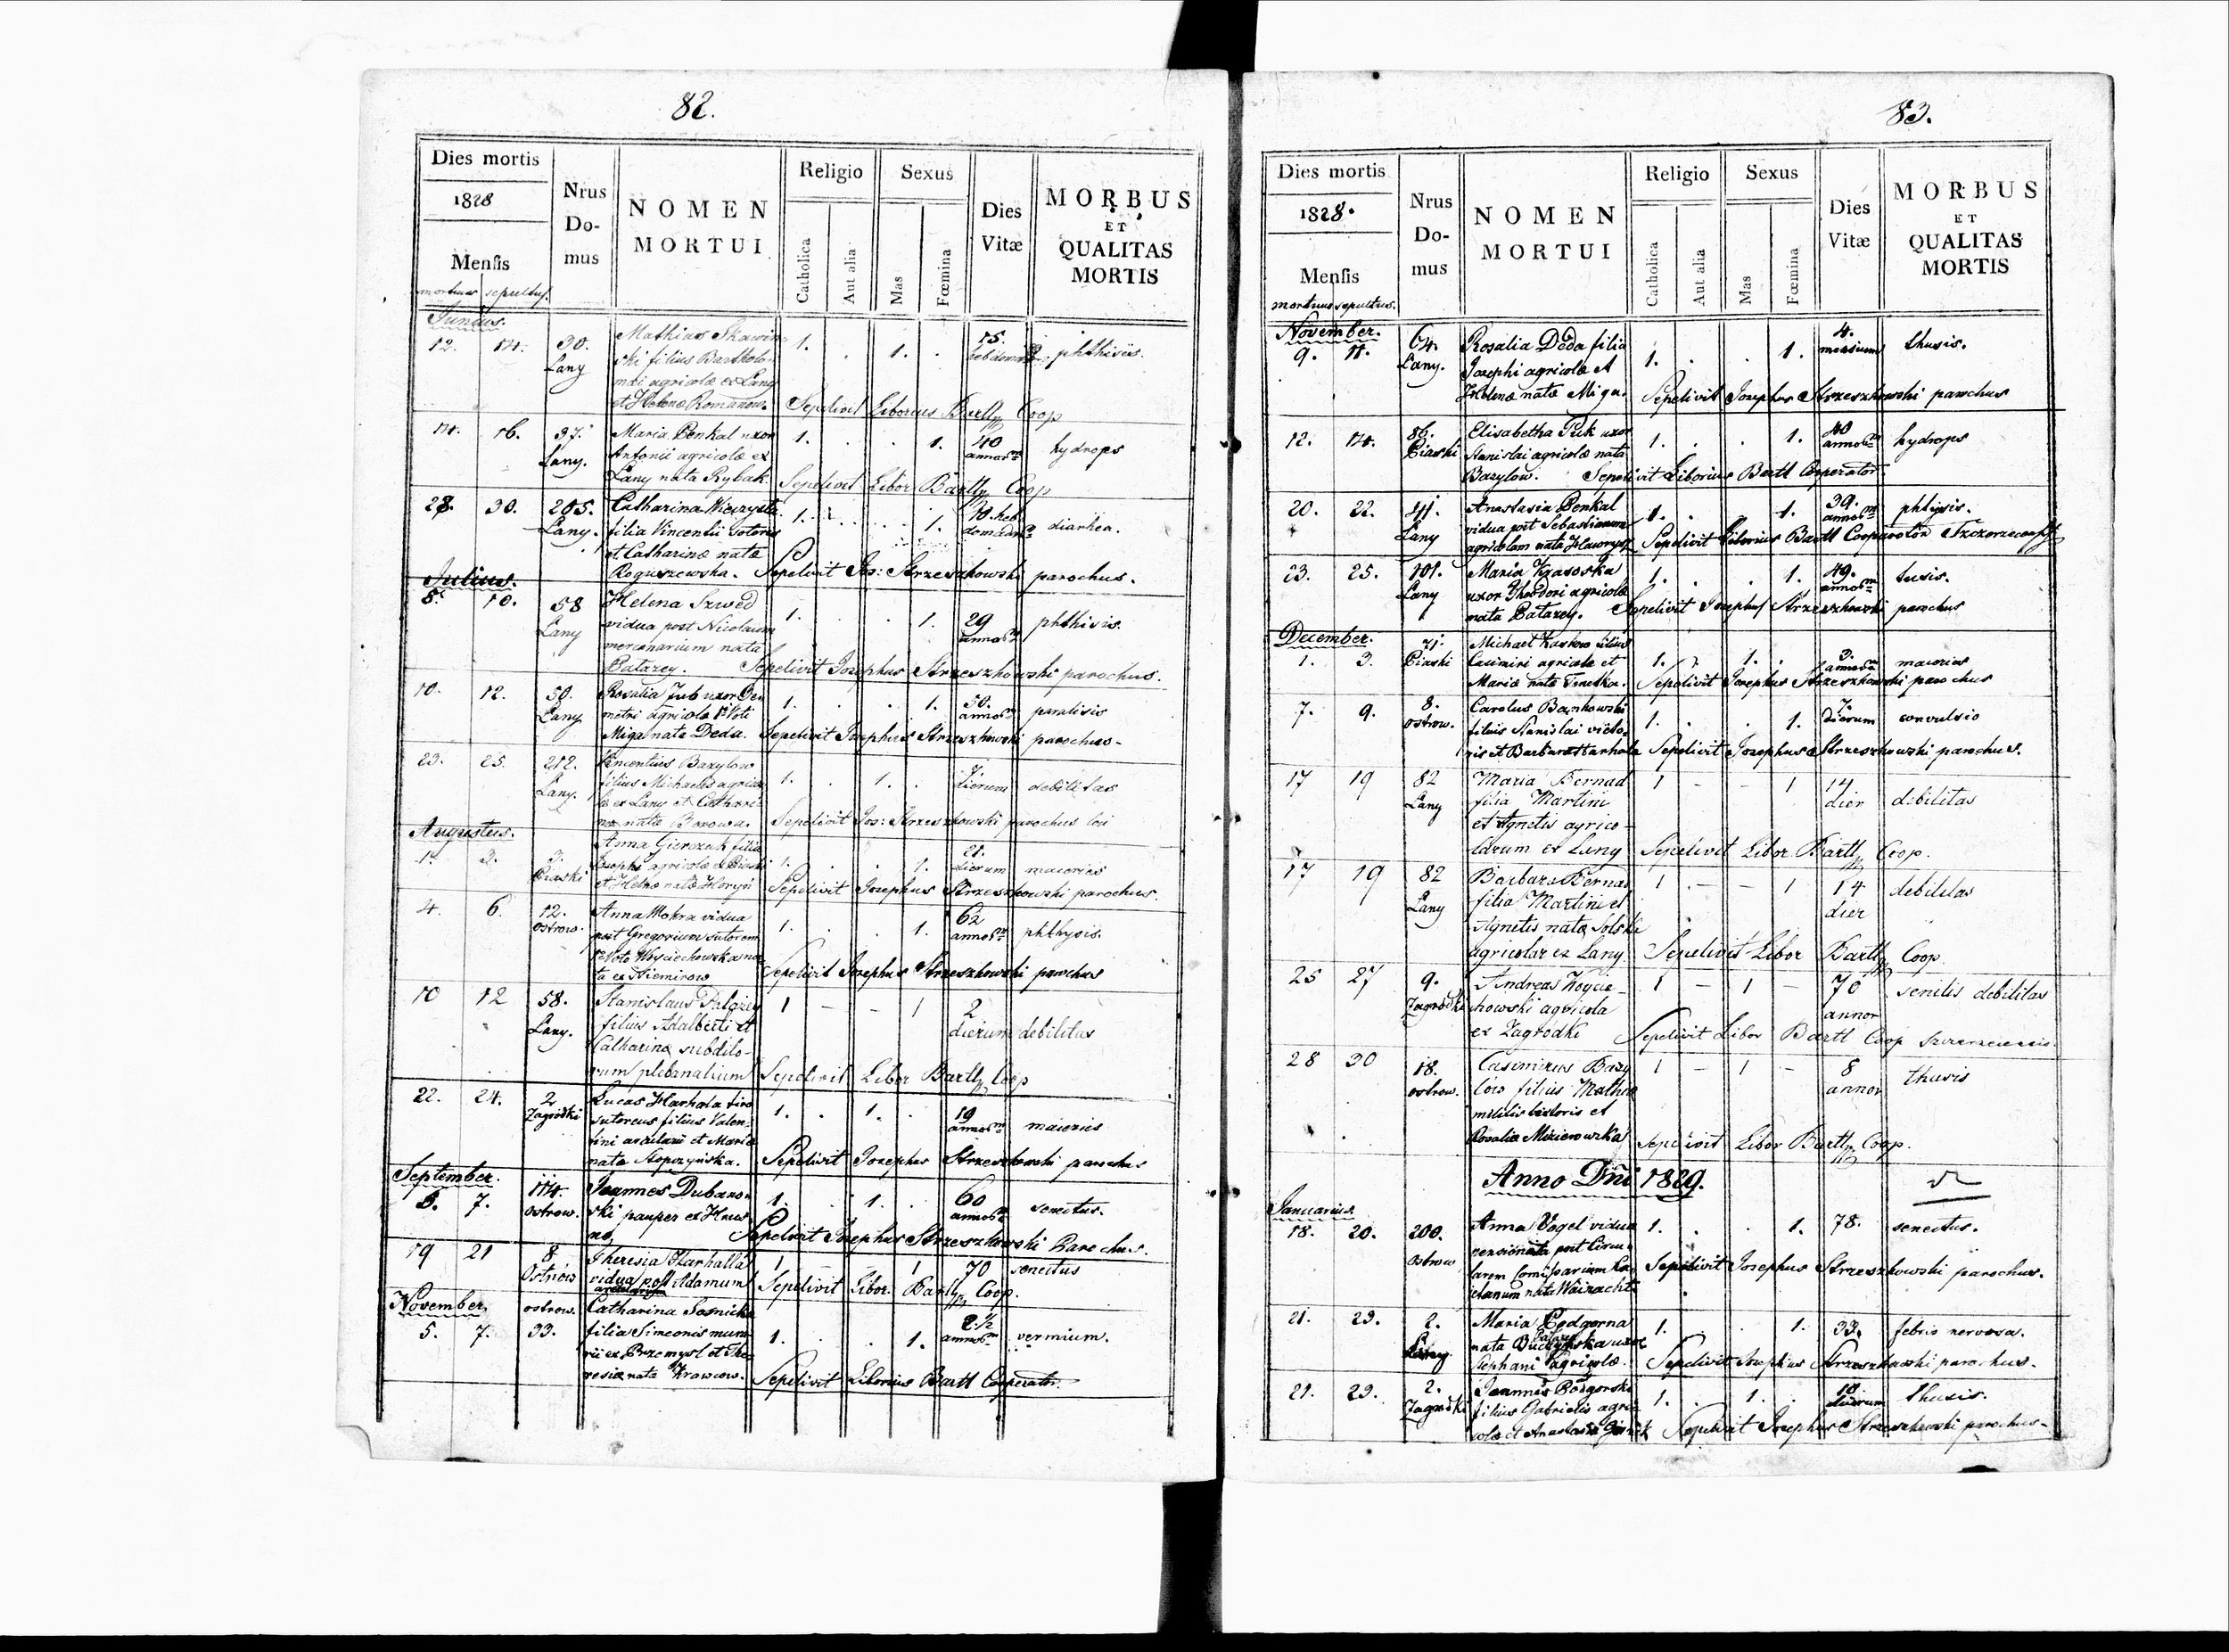 82.
Dies mortis
1828
Mensis
mortuus sepultus.
Nrus
Do-
mus
NOMEN
MORTUI
Religio
Catholica
Aut alia
Sexus
Mas
Fœmina
Dies
Vitæ
MORBUS
ET
QUALITAS
MORTIS
Junius.
12. 14. 30. Mathias Skawin 1. . 1. . 15. phthisis.
Lany ski filius Bartholo- hebdomad.
mæi agricolæ ex Lany
et Helenæ Romanow. Sepelivit Liborius Bartl Coop
14. 16. 37. Maria Penkal uxor 1. . . 1. 40 hydrops
Lany. Antonii agricolæ ex annor.
Lany nata Rybak. Sepelivit Libor Bartl Coop
28. 30. 205. Catharina 1. . . 1. 10. heb diarhea.
Lany. filia Vincentii sutoris domadar.
et Catharinæ natæ
Roguszewska. Sepelivit Jos: Strzeszkowski parochus.
Julius.
8. 10. 58 Helena Szwed 1. . . 1. 29 phthisis.
Lany vidua post Nicolaum annor.
mercenarium nata
Batazey. Sepelivit Josephus Strzeszkowski parochus.
10. 12. 50. Rosalia uxor De 1. . . 1. 50. paralisis
Lany metri agricolæ 1º Voti annor.
Miga nata Deda. Sepelivit Josephus Strzeszkowski parochus.
23. 25. 212. Vincentius Bazylow 1. . 1. . 7. debilitas
Lany. filius Michaelis agrico dierum
læ ex Lany et Cathari-
næ natæ Borowa. Sepelivit Jos: Strzeszkowski parochus loci
Augustus.
1. 3. 3. Anna Gierczak filia 1. . . 1. 21. maiories
Piaski Josephi agricolæ ex Piaski dierum
et Helenæ natæ Horyń Sepelivit Josephus Strzeszkowski parochus.
4. 6. 12. Anna Mokra vidua 1. . . 1. 62 phthysis.
Ostrow. post Gregorium sutorem annor.
1º Voto Woyciechowska na
ta ex Niemirow Sepelivit Josephus Strzeszkowski parochus
10 12 58. Stanislaus 1 – – 1 2 debilitas
Lany. filius Adalberti et dierum
Catharinæ subdito-
rum plebanalium Sepelivit Libor Bartl Coop
22. 24. 2 Lucas Harhala tiro 1. . 1. . 19 maiories
Zagrodki sutoreus filius Valen- annor.
tini arcularii et Mariæ
nata Sepelivit Josephus Strzeszkowski parochus
September.
5. 7. 114. Joannes Dubanow 1. . 1. . 60 senectus.
Ostrow. ski pauper ex
no, Sepelivit Josephus Strzeszkowski Parochus.
19 21 8 Theresia Harhalla 1 – – 1 70 senectus
Ostrów vidua post Adamum Sepelivit Libor. Bartl Coop.
arcularium
November.
5. 7. ostrow. Catharina Sosnicka 1. . . 1. 2 ½ vermium.
33. filia Simeonis mura annor.
rii ex Przemysl et The
resiæ nata Krawcow. Sepelivit Liborius Bartl Cooperator.
83.
Dies mortis
1828.
Mensis
mortuus sepultus.
Nrus
Do-
mus
NOMEN
MORTUI
Religio
Catholica
Aut alia
Sexus
Mas
Fœmina
Dies
Vitæ
MORBUS
ET
QUALITAS
MORTIS
November.
9. 11. 64. Rosalia Deda filia 1. . . 1. 4. thusis.
Lany. Josephi agricolæ et mensium
Helenæ natæ Miga. Sepelivit Josephus Strzeszkowski parochus
12. 14. 86. Elisabetha Puk uxor 1. . . 1. 40 hydrops
Piaski Stanislai agricolæ nata annor.
Bazylow. Sepelivit Liborius Bartl Cooperator.
20. 22. 41. Anastasia Penkal 1. . . 1. 39. phtysis.
Lany vidua post Sebastianum annor.
agricolam nata Sepelivit Liborius Bartl Cooperator
23. 25. 101. Maria Krasoska 1. . . 1. 49. tusis.
Lany uxor Theodori agricolæ annor.
nata Batazey. Sepelivit Josephus Strzeszkowski parochus
December.
1. 3. 71. Michael filius 1. . 1. . 3. maiories
Piaski Casimiri agricolæ et annor.
Mariæ nata Sepelivit Josephus Strzeszkowski parochus
7. 9. 8. Carolus Bankowski 1. . . 1. 7. convulsio
ostrow. filius Stanislai victo- dierum
ris et Barbaræ Harhala Sepelivit Josephus Strzeszkowski parochus.
17 19 82 Maria Bernad 1 – – 1 14 debilitas
Lany filia Martini dier
et Agnetis agrico-
larum ex Lany Sepelivit Libor Bartl Coop.
17 19 82 Barbara Bernad 1 – – 1 14 debilitas
Lany filia Martini et dier
Agnetis natæ Solska
agricolar ex Lany Sepelivit Libor Bartl Coop
25 27 9. Andreas Woycie- 1 – 1 – 70 senilis debilitas
Zagrodki chowski agricola annor
ex Zagrodki Sepelivit Libor Bartl Coop
28 30 18. Casimirus Bazy 1 – 1 – 8 thusis
ostrow. lów filius Mathiæ annor
militis et
Rosalia Sepelivit Libor Bartl Coop.
Anno Dni 1829.
Januarius.
18. 20. 200. Anna Vogel vidua 1. . . 1. 78. senectus.
Ostrow pensionata post Circu-
larem Comissarium Sepelivit Josephus Strzeszkowski parochus.
nata Wainacht
21. 23. 2. Maria Podgorna 1. . . 1. 33. febris nervosa.
Lany nata uxor
Stephani agricolæ. Sepelivit Josephus Strzeszkowski parochus.
21. 23. 2. Joannes Podgorski 1. . 1. . 10 thusis.
Zagrodki filius Gabrielis agri dierum
colæ et Anastasiæ Sepelivit Josephus Strzeszkowski parochus.